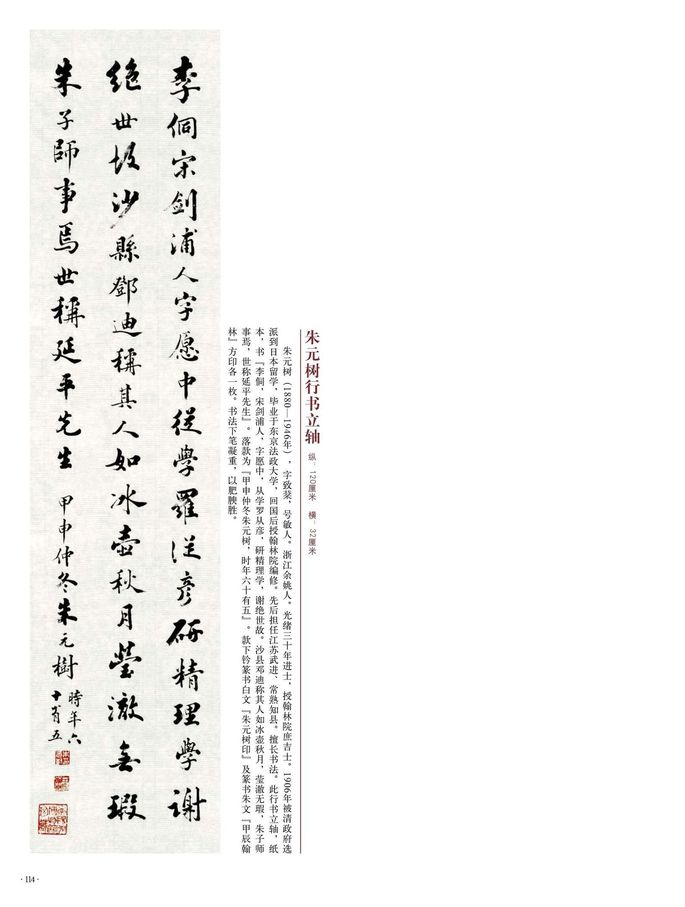 朱元树行书立轴
纵：120厘米 横：32厘米
朱元树（1880—1946年），字致棻，号敏人。浙江余姚人。光绪三十年进士，授翰林院庶吉士。1906年被清政府选
派到日本留学，毕业于东京法政大学，回国后授翰林院编修。先后担任江苏武进、常熟知县。擅长书法。此行书立轴，纸
本，书『李侗，宋剑浦人，字愿中，从学罗从彦，研精理学，谢绝世故。沙县邓迪称其人如冰壶秋月，莹澈无瑕，朱子师
事焉，世称延平先生』。落款为『甲申仲冬朱元树，时年六十有五』。款下钤篆书白文『朱元树印』及篆书朱文『甲辰翰
林』方印各一枚。书法下笔凝重，以肥腴胜。
李侗宋劍浦人字愿中從學羅從彥研精理學謝
絕世故沙縣鄧迪稱其人如冰壺秋月瑩澈無瑕
朱子師事焉世稱延平先生 甲申仲冬朱元樹
時年六
十有五
· 114 ·